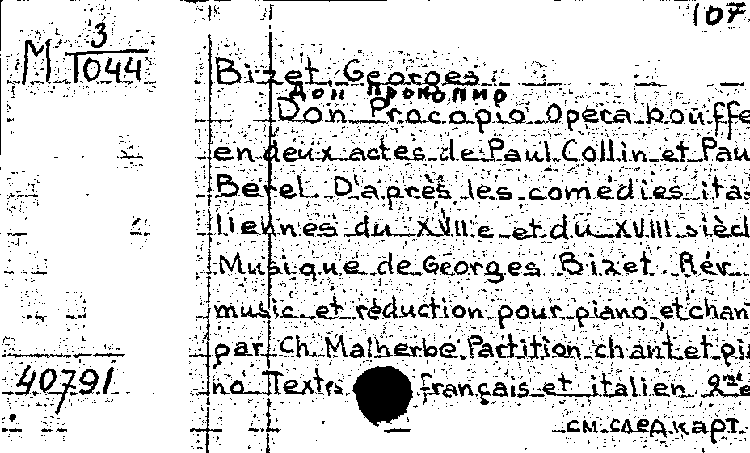 107
М 3
1044
Bizet Georges.
Дон Прокопио
Don Procopio Opera bouffe
en deux actes de Paul Collin et Pau
Berel. D'après les comedies ita=
liennes du XVII e et du XVIII siècl
Musique de Georges Bizet. Rév.
music. et réduction pour piano et chan
par Ch. Malherbe. Partition chant et pia
40791
no Textes français et italien 2me e
см. след карт.